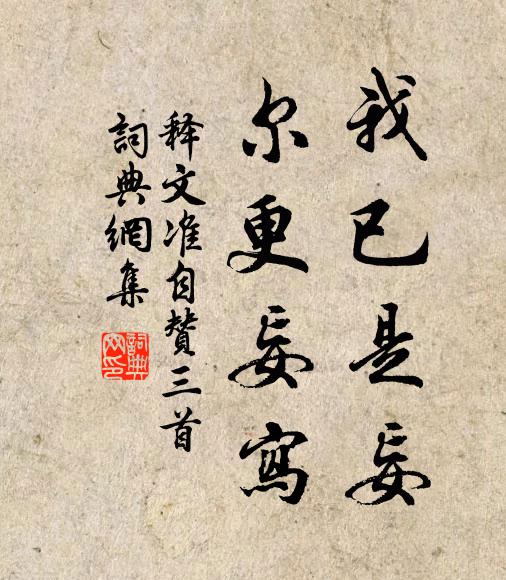 我已是妄
尔更妄寫
释文准自赞三首
詞典網集
詞典网印